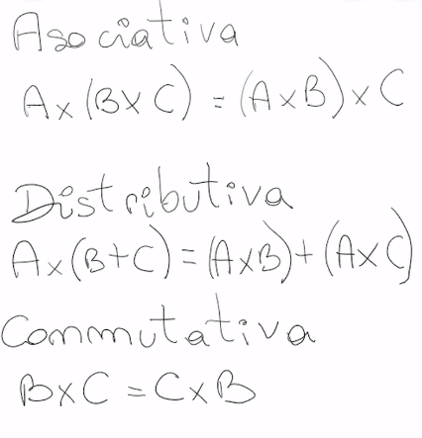 Asociativa
A×(B×C) = (A×B)×C
Distributiva
A×(B+C) = (A×B)+(A×C)
Commutativa
B×C = C×B